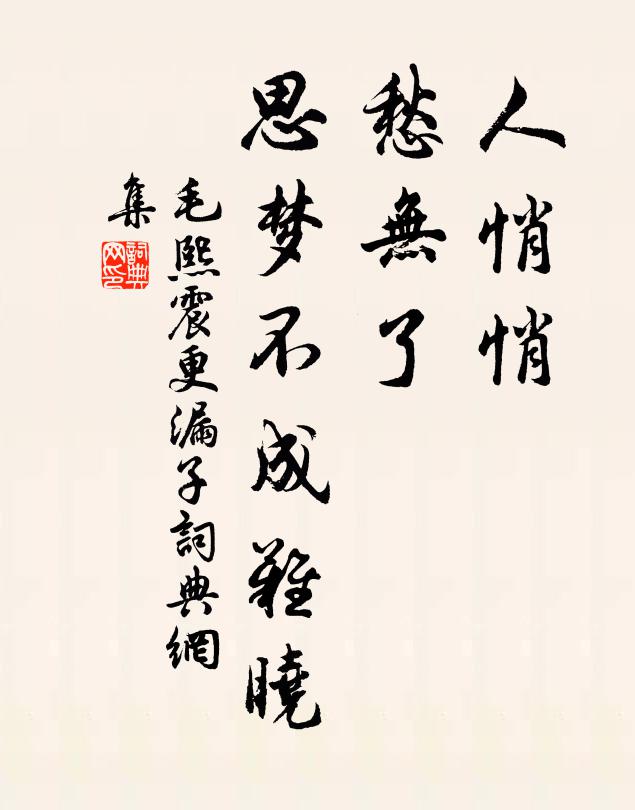 人悄悄
愁無了
思梦不成難曉
毛熙震更漏子詞典網
集
詞典網印